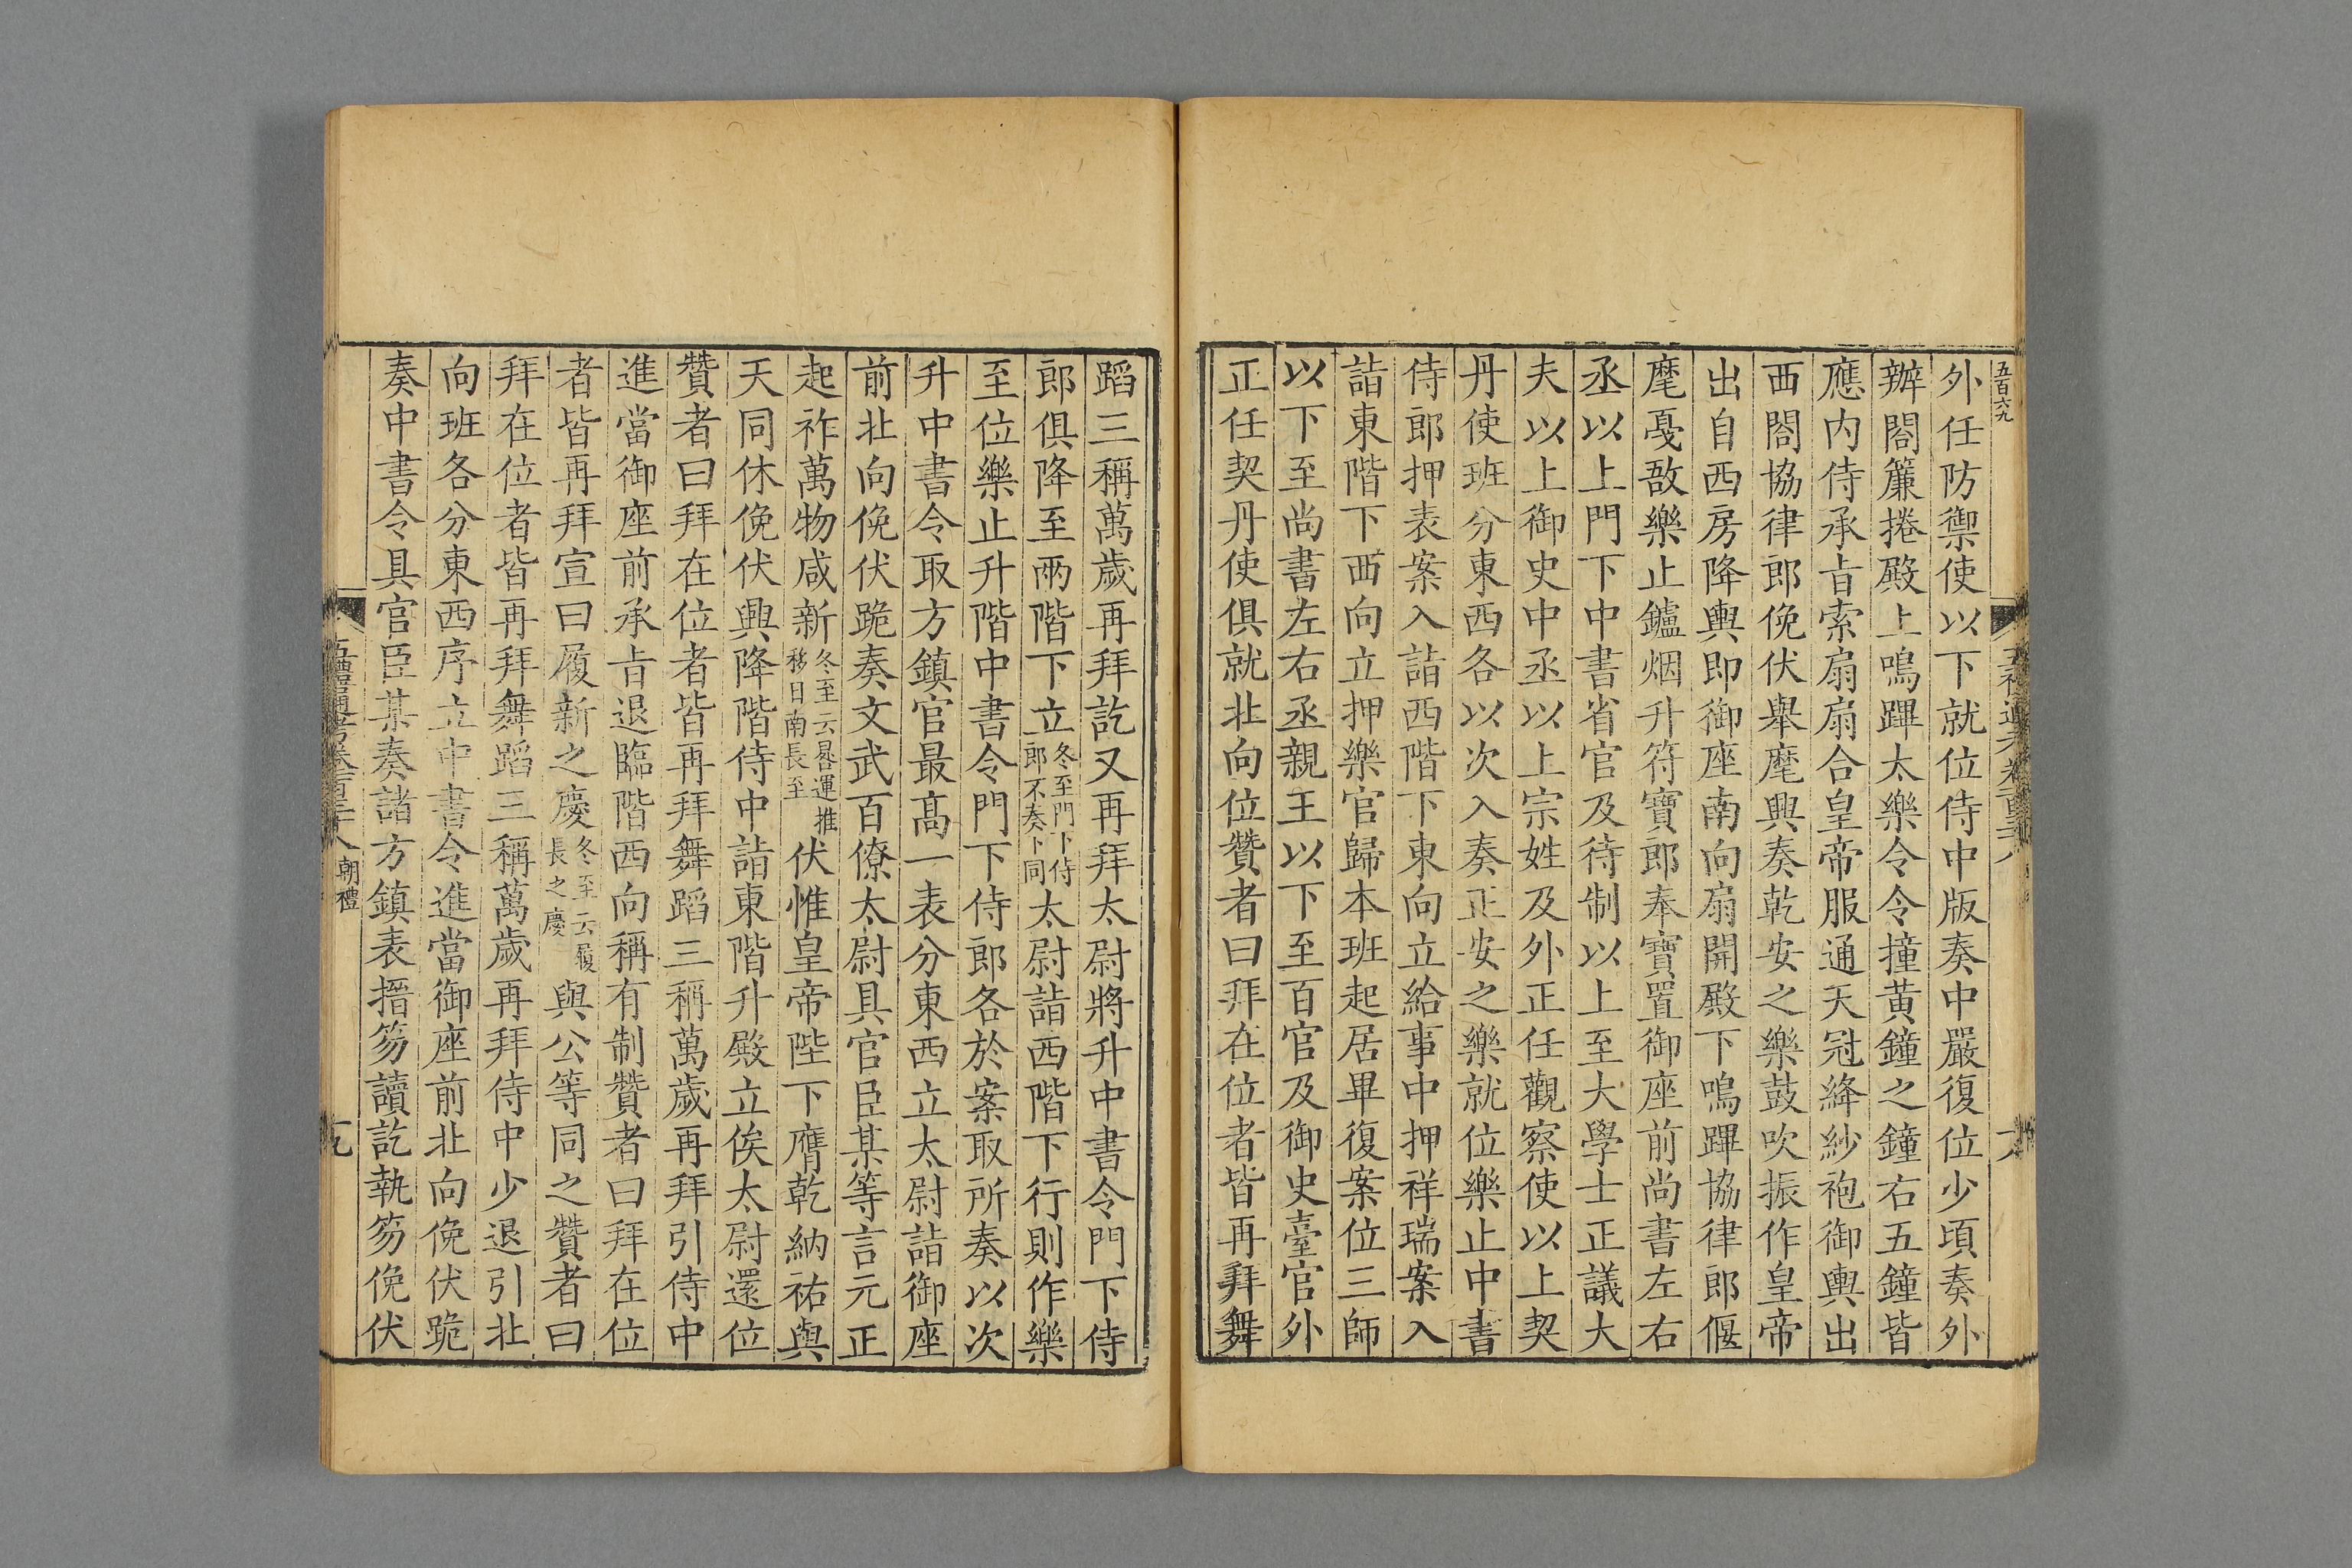 五百六九
外任防禦使以下就位侍中版奏中嚴復位少頃奏外
辦閤簾捲殿上鳴蹕太樂令令撞黄鐘之鐘右五鐘皆
應内侍承㫖索扇扇合皇帝服通天冠絳紗袍御輿出
西閤協律郎俛伏舉麾興奏乾安之樂鼓吹振作皇帝
出自西房降輿即御座南向扇開殿下鳴蹕協律郎偃
麾戞敔樂止鑪烟升符寶郎奉寶置御座前尚書左右
丞以上門下中書省官及待制以上至大學士正議大
夫以上御史中丞以上宗姓及外正任觀察使以上契
丹使班分東西各以次入奏正安之樂就位樂止中書
侍郎押表案入詣西階下東向立給事中押祥瑞案入
詣東階下西向立押樂官歸本班起居畢復案位三師
以下至尚書左右丞親王以下至百官及御史臺官外
正任契丹使俱就北向位贊者曰拜在位者皆再拜舞
蹈三稱萬歲再拜訖又再拜太尉將升中書令門下侍
郎俱降至兩階下立冬至門下侍郎不奏下同太尉詣西階下行則作樂
至位樂止升階中書令門下侍郎各於案取所奏以次
升中書令取方鎮官最高一表分東西立太尉詣御座
前北向俛伏跪奏文武百僚太尉具官臣某等言元正
起祚萬物咸新冬至云晷運推移日南長至伏惟皇帝陛下膺乾納祐與
天同休俛伏興降階侍中詣東階升殿立俟太尉還位
贊者曰拜在位者皆再拜舞蹈三稱萬歲再拜引侍中
進當御座前承㫖退臨階西向稱有制贊者曰拜在位
者皆再拜宣曰履新之慶冬至云履長之慶與公等同之贊者曰
拜在位者皆再拜舞蹈三稱萬歲再拜侍中少退引北
向班各分東西序立中書令進當御座前北向俛伏跪
奏中書令具官臣某奏諸方鎮表搢笏讀訖執笏俛伏
朝禮